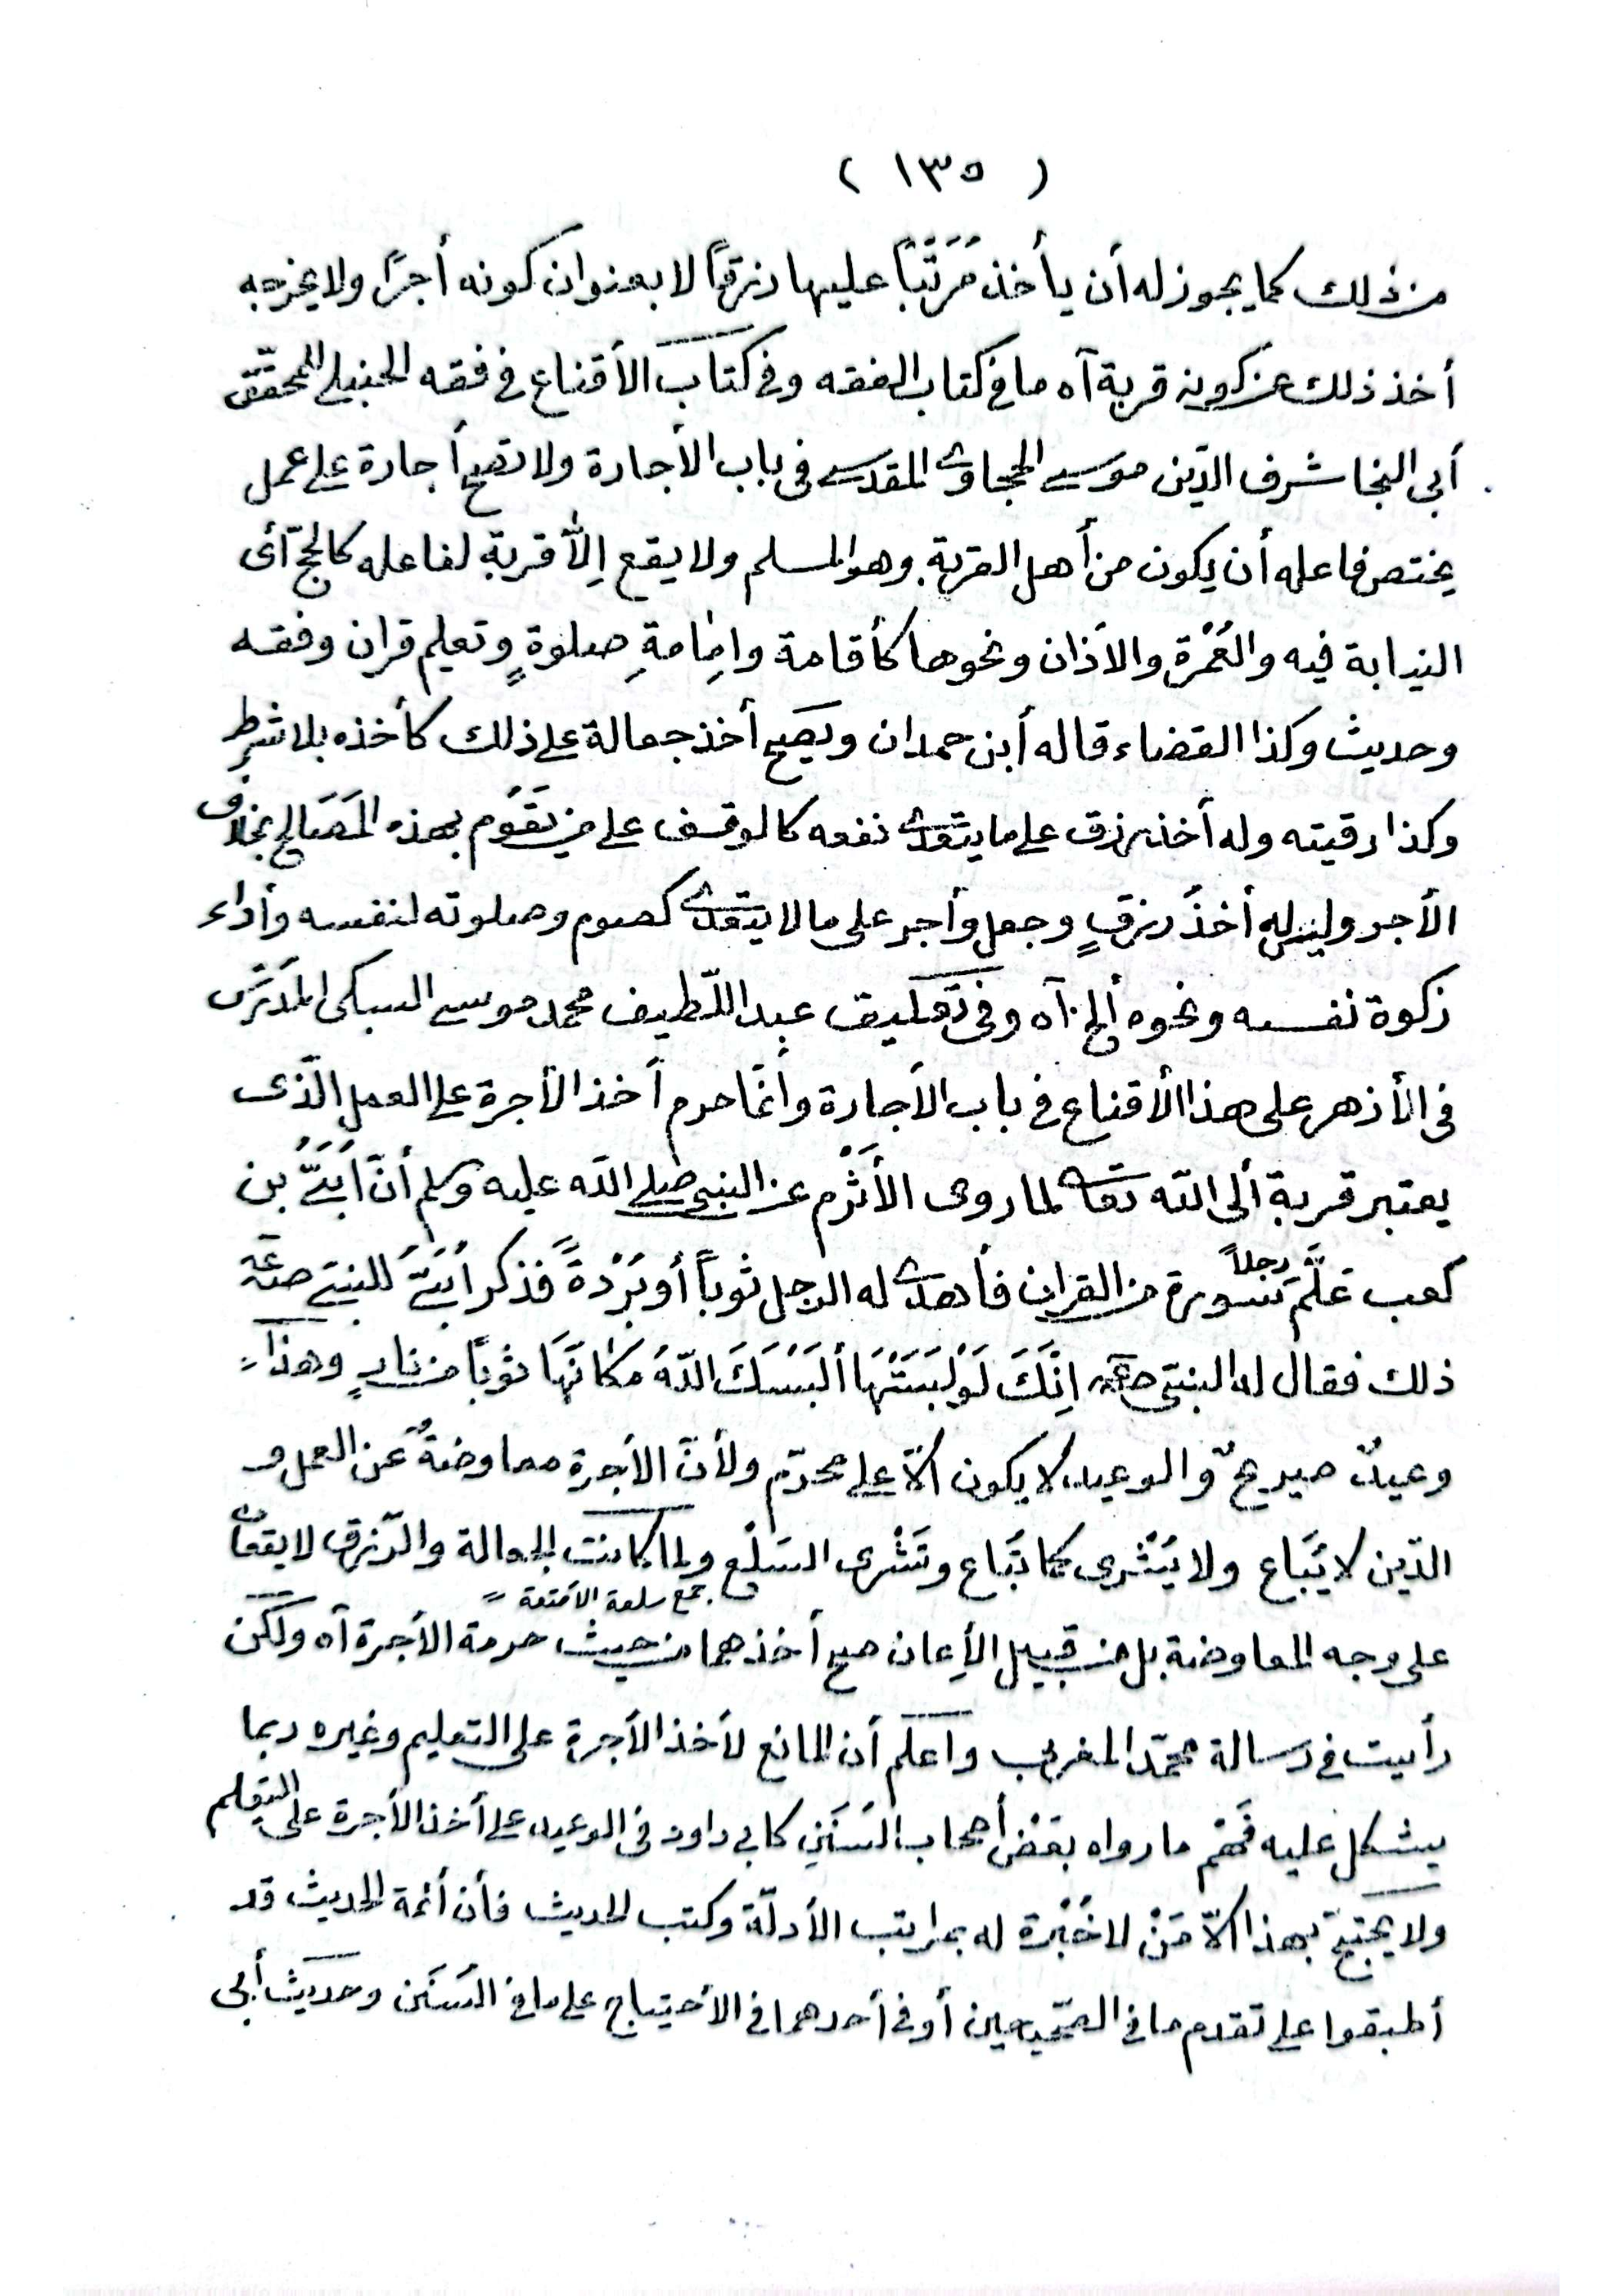 ( ١٣٥ )
من ذلك كما يجوز له أن يأخذ مُرَتَّبًا عليها رزقًا لا بعنوان كونه أجرًا ولا يخرجه
أخذ ذلك عن كونه قربة آه ما فى كتاب الفقه وفى كتاب الأقناع فى فقه الحنبلى للمحقّق
أبى النجا شرف الدّين موسى الحجاوى المقدسى فى باب الأجارة ولا تصح أجارة على عمل
يختص فاعله أن يكون من أهل القربة. وهو المسلم ولا يقع اِلّا قربة لفاعله كالحجّ أى
النيابة فيه والعُمْرة والاذان ونحوها كأقامة واِمامةِ صلوةٍ وتعليم قران وفقه
وحديث وكذا القضاء قاله أبن حمدان ويصح أخذ جعالة على ذلك كأخذه بلا شرط
وكذا رقيته وله أخذ رزق على ما يتعدى نفعه كالوقف على من يَقُوم بهذه المَصَالح بخلاف
الأجر وليس له أخذُ رزقٍ وجعل وأجر على ما لا يتعدى كصوم وصلوته لنفسه وأداء
زكوة نفسه ونحوه ألخ. آه وفى تعليق عبد اللّطيف محمد موسى السبكى المدَرّس
فى الأزهر على هذا الأقناع فى باب الأجارة وأنّما حرم أخذ الأجرة على العمل الّذى
يعتبر قربة ألى الله تعالى لما روى الأثْرَم عن النبى صلى الله عليه وسلم أنّ أُبَىَّ بن
كعب عَلَّمَ رجلاً سورة من القران فأهدى له الرجل ثوباً أو بُرْدةً فذكر أُبَىّ للنبىّ صلعم
ذلك فقال له النبىّ صلعم اِنَّكَ لَوْ لَبِسْتَهَا أَلْبَسَكَ اللّهُ مَكَانَهَا ثوبًا من نارٍ وهذا
وعيدٌ صريحٌ والوعيد لا يكون الّا على محرّم ولأنّ الأجرة معاوضةٌ عن العمل و
الدّين لا يُبَاع ولا يُشْرى كما تُبَاع وتُشْرى السلَع ولما كانت الجعالة والرّزق لا يقعان
جمع سلعة الأمتعة
على وجه المعاوضة بل من قبيل الأعان صح أخذهما من حيث حرمة الأجرة آه ولكن
رأيت فى رسالة محمّد المغربى وأعلم أن المانع لأخذ الأجرة على التعليم وغيره ربما
يشكل عليه فَهْم ما رواه بعْض أصحاب السُنَن كابى داود فى الوعيد على أخذ الأجرة على التعلم
ولا يحتجّ بهذا الّا مَنْ لا خُبْرة له بمراتب الأدلّة وكتب الحديث فأن أئمة الحديث قد
أطبقوا على تقدم ما فى الصّحيحين أو فى أحدهما فى الأحتياج على ما فى السُنَن وحديث أبى